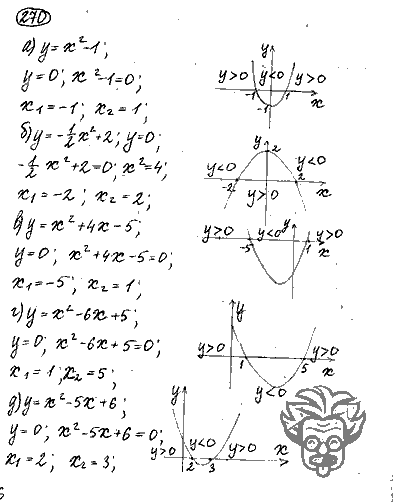 270
а) y = x² - 1;
y = 0; x² - 1 = 0;
x₁ = -1; x₂ = 1;
y
y > 0 y < 0 y > 0
-1 1
-1 x
б) y = -1/2 x² + 2; y = 0;
-1/2 x² + 2 = 0; x² = 4;
x₁ = -2; x₂ = 2;
y
2
y < 0 y < 0
-2 2
y > 0 x
в) y = x² + 4x - 5;
y = 0; x² + 4x - 5 = 0;
x₁ = -5; x₂ = 1;
y
y > 0 y < 0 y > 0
-5 1 x
г) y = x² - 6x + 5;
y = 0; x² - 6x + 5 = 0;
x₁ = 1; x₂ = 5;
y
y > 0 y > 0
1 5 x
y < 0
д) y = x² - 5x + 6;
y = 0; x² - 5x + 6 = 0;
x₁ = 2; x₂ = 3;
y
y < 0
y > 0 y > 0 x
2 3